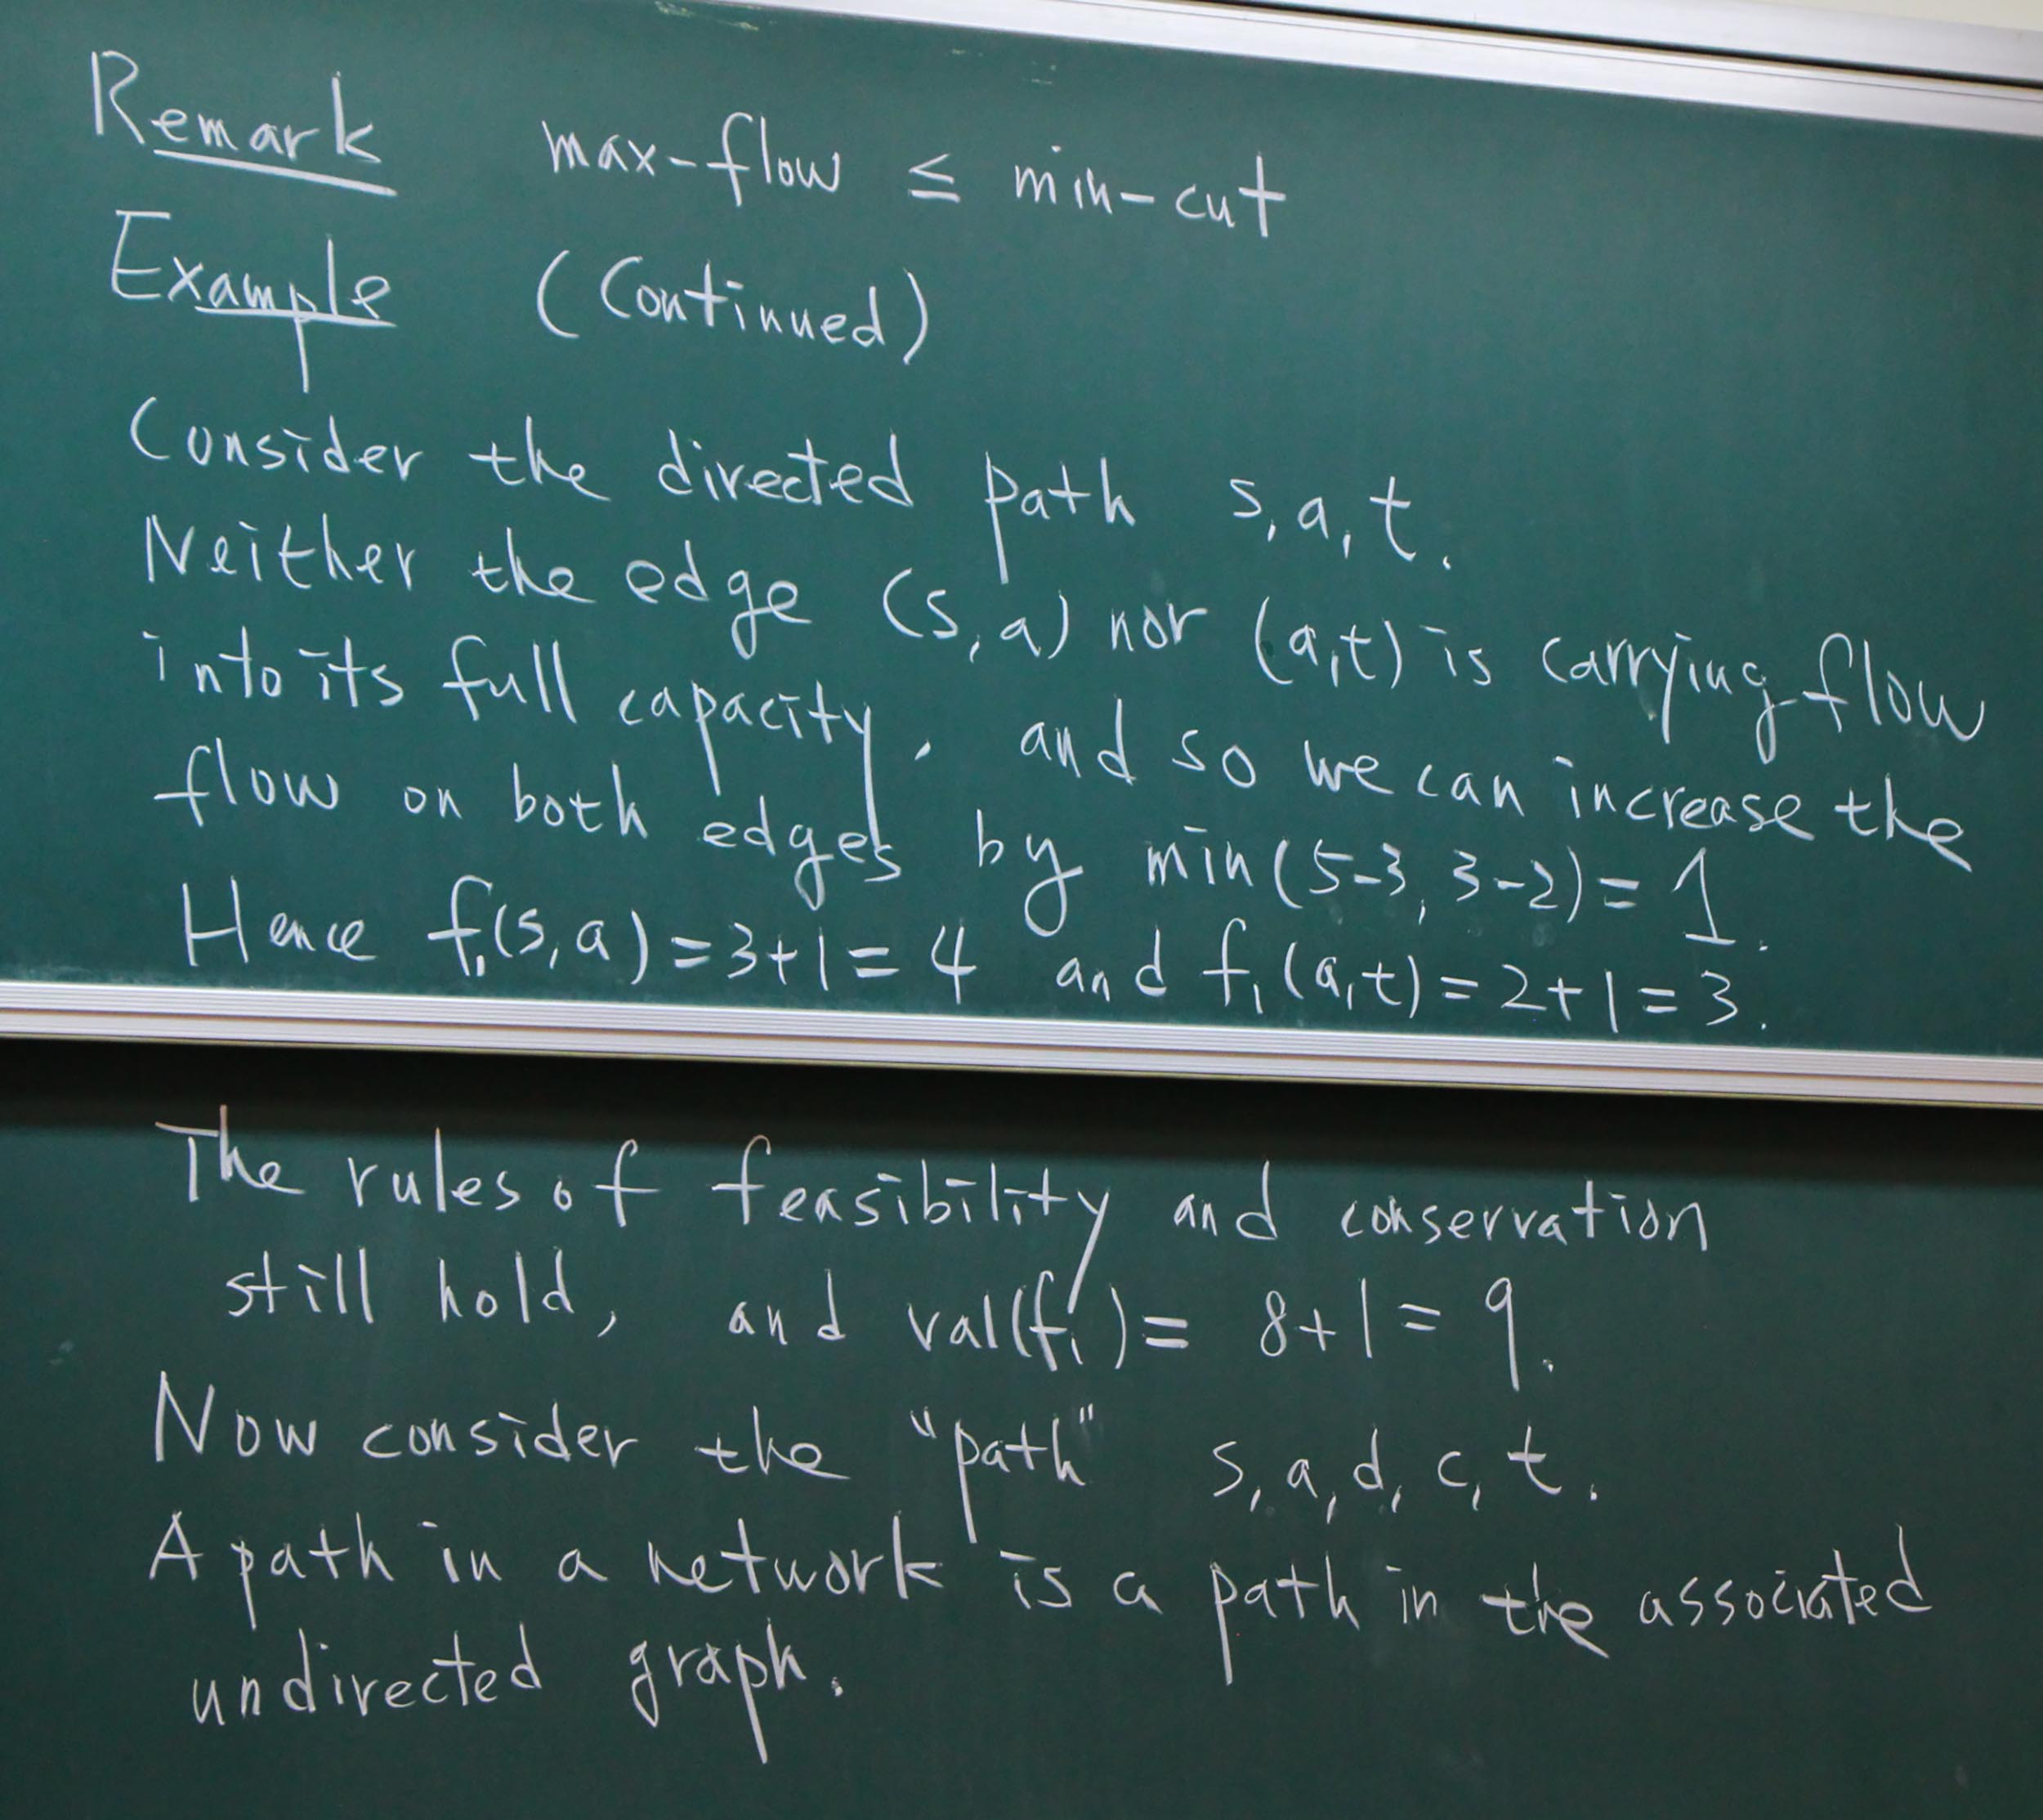 Remark max-flow ≤ min-cut
Example (Continued)
Consider the directed path s, a, t.
Neither the edge (s, a) nor (a, t) is carrying flow
into its full capacity, and so we can increase the
flow on both edges by min(5-3, 3-2) = 1.
Hence f₁(s, a) = 3+1 = 4 and f₁(a, t) = 2+1 = 3.
The rules of feasibility and conservation
still hold, and val(f₁) = 8+1 = 9.
Now consider the "path" s, a, d, c, t.
A path in a network is a path in the associated
undirected graph.